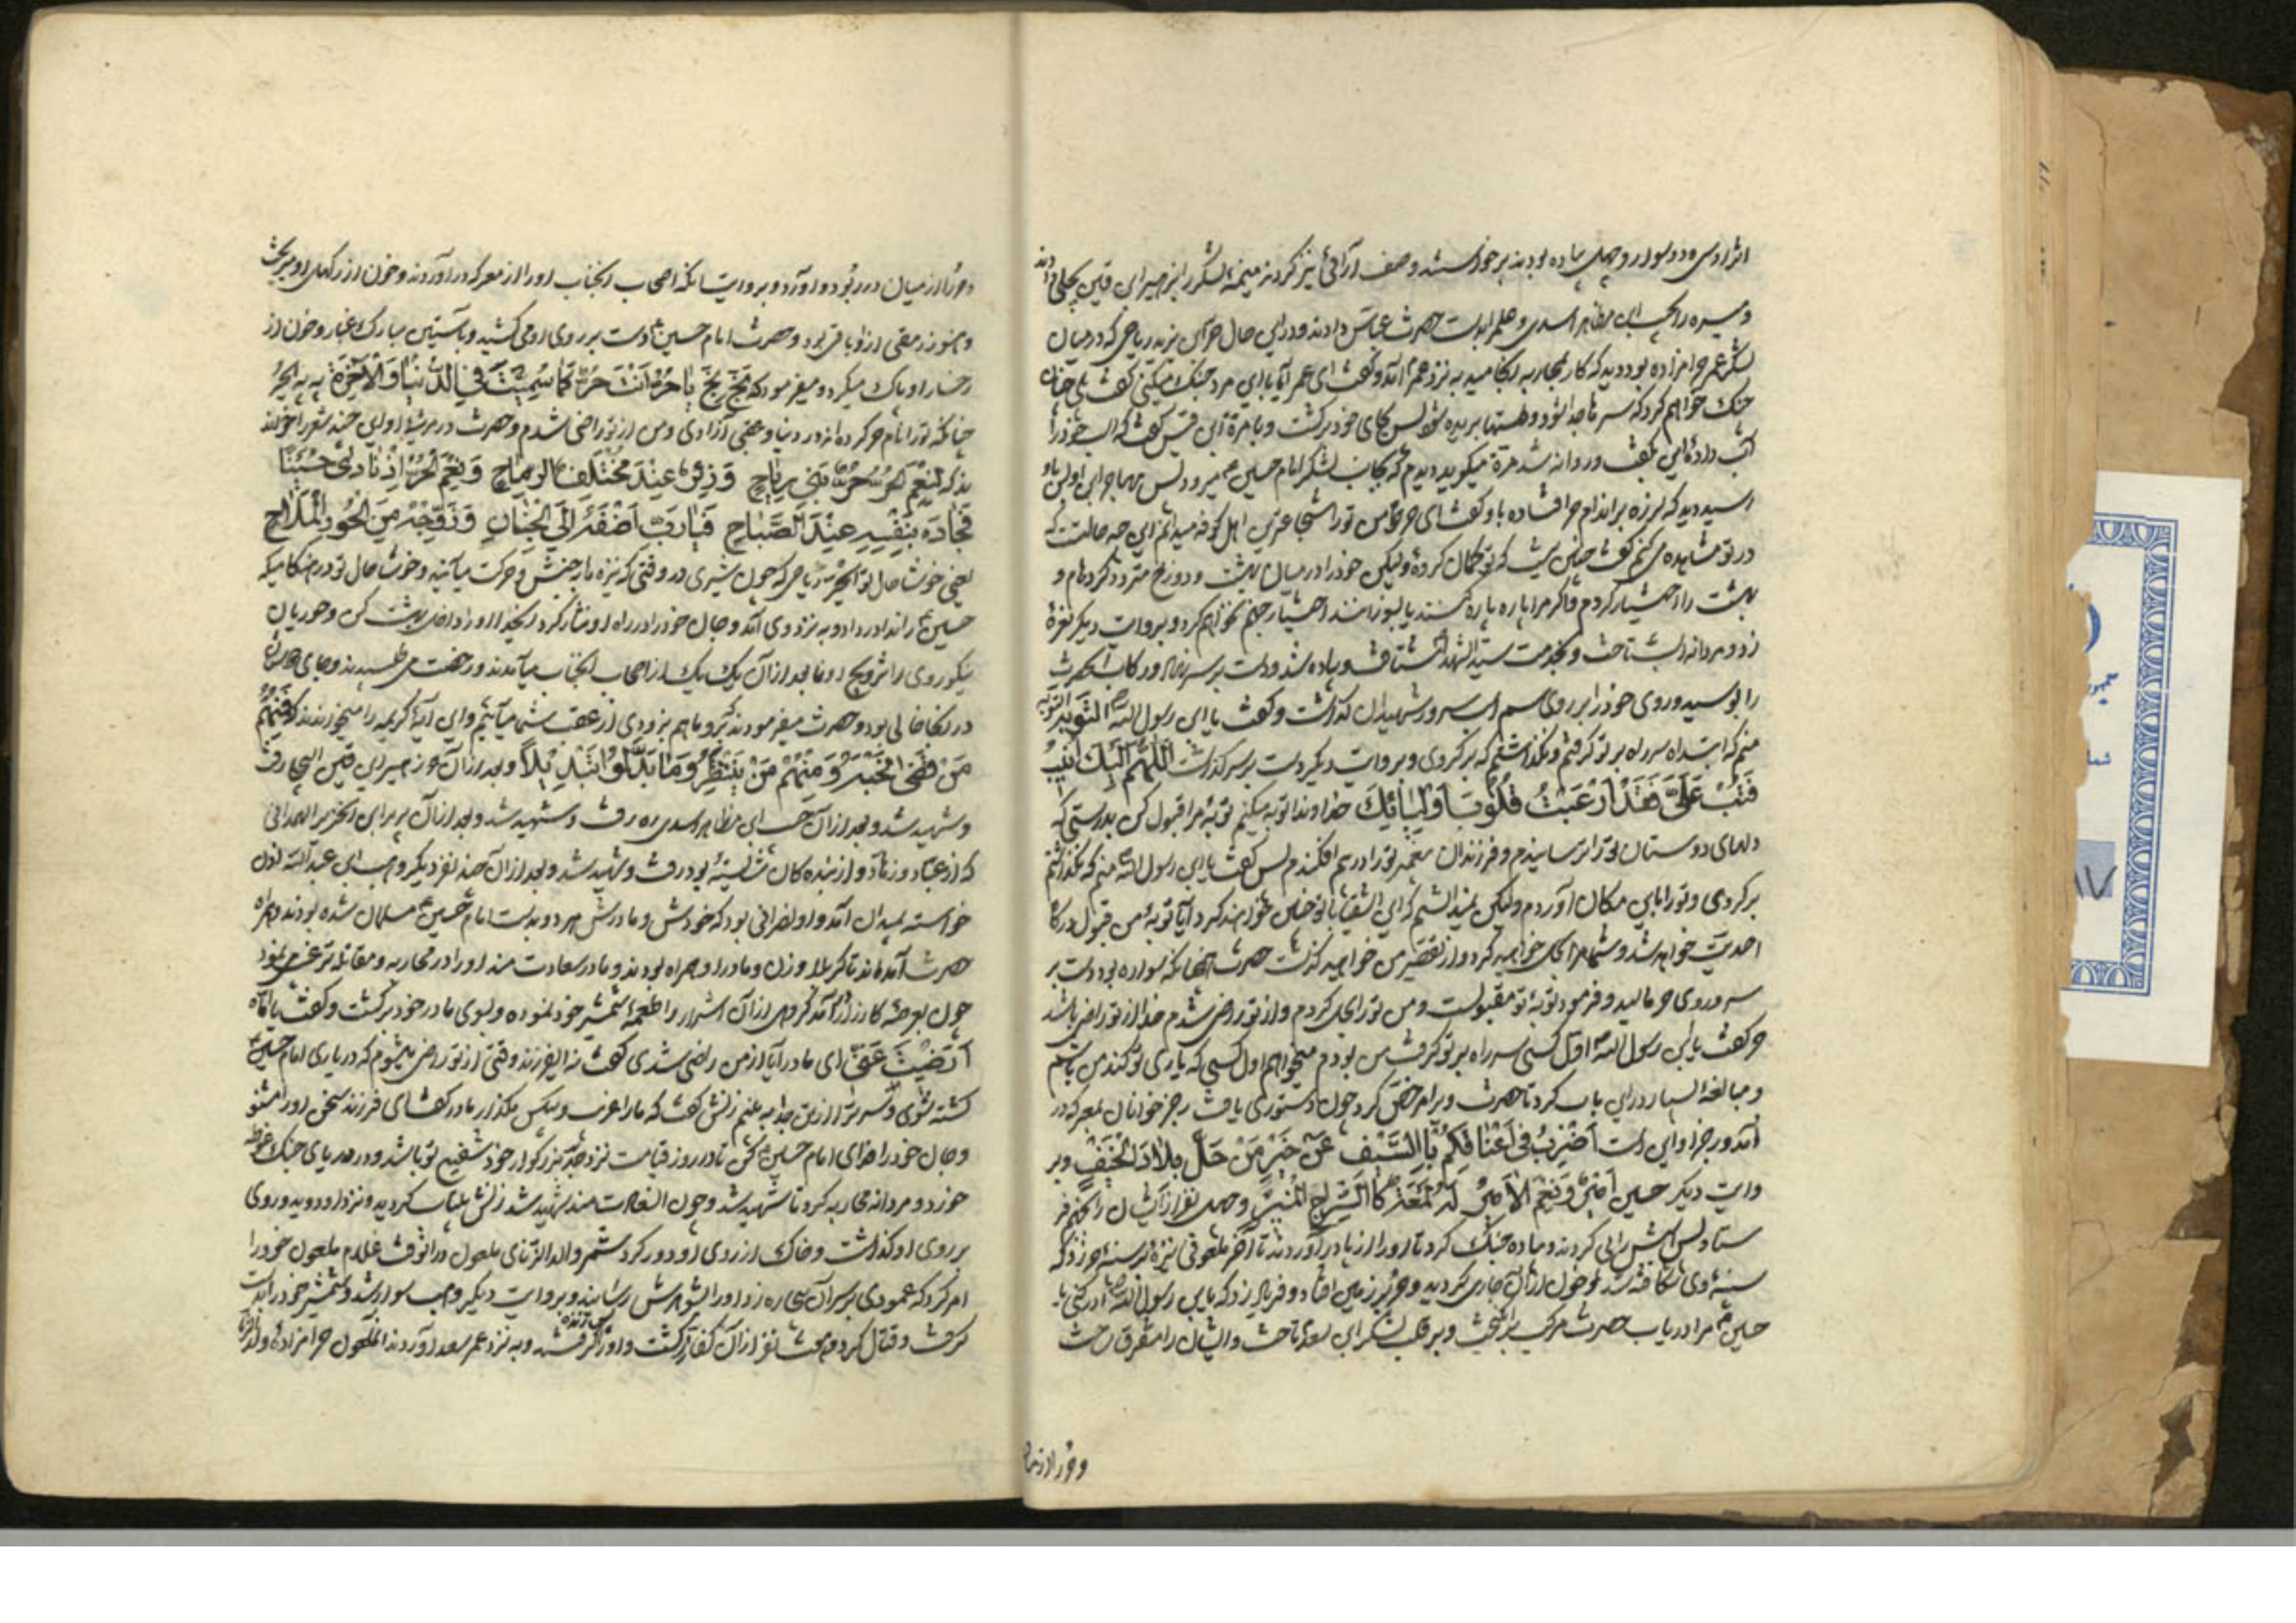 اثر او سی و دو سوار و چهل پیاده بودند برخواستند و صف آرائی نیز کردند میمنه لشکر را بزهیر ابن قین بجلی دادند
و میسره را بحبیب ابن مظاهر اسدی و علم را بدست حضرت عباس دادند و در این حال حر ابن یزید ریاحی که در میان
لشکر عمر حرامزاده بود دید که کار بمحاربه انجامید به نزد عمر آمد و گفت ای عمر آیا با این مرد جنگ میکنی گفت بلی چنان
جنگ خواهم کرد که سرها جدا شود و دستها بریده شود پس بجای خود برگشت و با قرة ابن قیس گفت که اسب خود را
آب داده‌ای گفت و روانه شد قرة میگوید دیدم که بجانب لشکر امام حسین ع میرود پس مهاجر ابن اوس باو
رسید دید که لرزه بر اندام حر افتاده باو گفت ای حر من تو را شجاعترین اهل کوفه میدانم این چه حالت است که
در تو مشاهده می کنم گفت چنین نیست که تو گمان کردهٔ ولیکن خود را در میان بهشت و دوزخ متردد کرده‌ام و
بهشت را اختیار کردم و اگر مرا پاره پاره کنند یا بسوزانند اختیار جهنم نخواهم کرد و بروایت دیگر نعرهٔ
زد و مردانه اسب تاخت و بخدمت سید الشهدا شتافت و پیاده شد و دست بر سر نهاد و رکاب آنحضرت
را بوسید و روی خود را بر روی سم اسب سرور شهیدان گذاشت و گفت یا ابن رسول الله التوبة التوبة
منم که ابتدا سر راه بر تو گرفتم و نگذاشتم که برگردی و بروایت دیگر دست بر سر گذاشت اَللّهُمَّ اِلَیْكَ اُنیبُ
فَتُبْ عَلَیَّ فَقَدْ اَرْعَبْتُ قُلُوبَ اَوْلِیائِكَ خداوندا توبه میکنم توبهٔ مرا قبول کن بدرستی که
دلهای دوستان تو را ترسانیدم و فرزندان پیغمبر تو را در بیم افکندم پس گفت یا ابن رسول الله منم که نگذاشتم
برگردی و تو را باین مکان آوردم ولیکن نمیدانستم که این اشقیا با تو چنین خواهند کرد آیا توبهٔ من قبول درگاه
احدیت خواهد شد و شما مرا بحل خواهید کرد و از تقصیر من خواهید گذشت حضرت چنانکه سواره بود دست بر
سر و روی حر مالید و فرمود توبهٔ تو مقبولست و من تو را بحل کردم و از تو راضی شدم خدا از تو راضی باشد
حر گفت یا ابن رسول الله اول کسی سر راه بر تو گرفت من بودم میخواهم اول کسی که یاری تو کند من باشم
و مبالغهٔ بسیار در این باب کرد تا حضرت ویرا مرخص کرد چون دستوری یافت رجز خوانان بمعرکه در
آمد و رجز او این است اَضْرِبُ فی اَعْناقِکُمْ بِالسَّیْفِ عَنْ خَیْرِ مَنْ حَلَّ بِلادَ الْخَیْفِ و بر
وایت دیگر حسین امیری و نعم الامیر له لمعة کالسراج المنیر و چهل نفر از ایشان را بجهنم فر
ستاد پس اسبش را پی کردند و پیاده جنگ کرد تا او را از پا در آوردند تا آخر ملعونی نیزهٔ بر سینه حر زد که
سینهٔ وی شکافته شد و خون از آن جاری گردید و حر بر زمین افتاد و فریاد زد که یا ابن رسول الله ادرکنی یا
حسین ع مرا دریاب حضرت مرکب برانگیخت و بر قلب لشکر ابن سعد تاخت و ایشان را متفرق ساخت
و حر را از میان
و حر را از میان در ربود و آورد و بروایت آنکه اصحاب آنجناب او را از معرکه در آوردند و خون از رگهای او میریخت
و هنوز رمقی از او باقی بود و حضرت امام حسین ع دست بر روی او می کشید و بآستین مبارک غبار و خون از
رخسار او پاک میکرد و میفرمود که بَخٍّ بَخٍّ یا حُرُّ اَنْتَ حُرٌّ کَما سُمِّیتَ فِی الدُّنْیا وَ الْآخِرَةِ به به ای حر
چنانکه تو را نام حر کرده‌اند در دنیا و عقبی آزادی و من از تو راضی شدم و حضرت در مرثیهٔ او این چند شعر را خواند
لَنِعْمَ الْحُرُّ حُرُّ بَنی رِیاحٍ وَ عِنْدَ مُخْتَلَفِ الرِّماحِ وَ نِعْمَ الْحُرُّ اِذْ نادی حُسَیْناً
فَجادَ بِنَفْسِهِ عِنْدَ الصَّباحِ فَیا رَبِّ اَضِفْهُ اِلَی الْجِنانِ وَ زَوِّجْهُ مِنَ الْحُورِ الْمَلاحِ
یعنی خوشا حال تو ای حر ریاحی که چون شیری در وقتی که نیزه ها به جنبش و حرکت میآیند و خوشا حال تو در هنگامیکه
حسین ع را ندا در داد و به نزد وی آمد و جان خود را در راه او نثار کرد ای خدا او را داخل بهشت کن و حوریان
نیکو روی را تزویج او نما بعد از آن یک یک از اصحاب آنجناب میآمدند و رخصت می طلبیدند و جای هر یک
در آنجا خالی بود و حضرت میفرمودند که برو ما هم بزودی از عقب شما میآئیم و این آیهٔ کریمه را میخواندند که فَمِنْهُمْ
مَنْ قَضی نَحْبَهُ وَ مِنْهُمْ مَنْ یَنْتَظِرُ وَ ما بَدَّلُوا تَبْدیلاً و بعد از آن زهیر ابن قین البجلی رفت
و شهید شد و بعد از آن حبیب ابن مظاهر اسدی ره رفت و شهید شد و بعد از آن بریر ابن الخضیر الهمدانی
که از عباد و زهاد و از بندهگان شایسته بود رفت و شهید شد و بعد از آن چند نفر دیگر وهب ابن عبد الله اذن
خواسته بمیدان آمد و او نصرانی بود که خودش و مادرش هر دو بدست امام حسین ع مسلمان شده بودند و همراه
حضرت آمده‌اند تا کربلا و زن و مادر او همراه بودند و مادر سعادتمند او را در محاربه و مقاتله ترغیب می نمود
چون بعرصه کارزار آمد گروهی از آن اشرار را طعمهٔ شمشیر خود نموده و بسوی مادر خود برگشت و گفت یا اماه
اَرَضیتِ عَنّی ای مادر آیا از من راضی شدی گفت نه ای فرزند وقتی از تو راضی میشوم که در یاری امام حسین ع
کشته شوی و سرت را از تن جدا به بینم زنش گفت که مارا غریب و بیکس مگذار مادر گفت ای فرزند سخن او را مشنو
و جان خود را فدای امام حسین ع کن تا در روز قیامت نزد جد بزرگوار خود شفیع تو باشد و در دریای جنگ غوطه
خورد و مردانه محاربه کرد تا شهید شد و چون آن سعادتمند شهید شد زنش بیتاب گردید و نزد او دوید و روی
بر روی او گذاشت و خاک از روی او دور کرد شمر والد الزنای ملعون در آنوقت غلام ملعون خود را
امر کرد که عمودی بر سر آن بیچاره زد او را بشوهرش رسانید و بروایت دیگر وهب سوار شد و شمشیر خود را بدست
گرفت و قتال کرد و هشت نفر از آن کفار کشت و او را گرفتند و به نزد عمر سعد آوردند آنملعون حرامزاده ولد الزنا